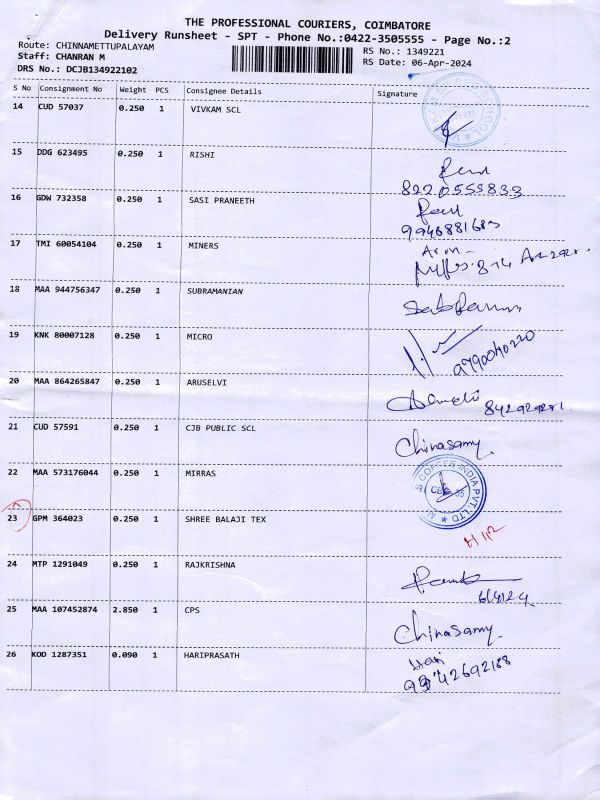 THE PROFESSIONAL COURIERS, COIMBATORE
Delivery Runsheet - SPT - Phone No.:0422-3505555 - Page No.:2
Route: CHINNAMETTUPALAYAM
Staff: CHANRAN M
DRS No.: DCJB134922102
RS No.: 1349221
RS Date: 06-Apr-2024
S No Consignment No Weight PCS Consignee Details Signature
14 CUD 57037 0.250 1 VIVKAM SCL
15 DDG 623495 0.250 1 RISHI
8220553833
16 GDW 732358 0.250 1 SASI PRANEETH
17 TMI 60054104 0.250 1 MINERS
18 MAA 944756347 0.250 1 SUBRAMANIAN
19 KNK 80007128 0.250 1 MICRO
9790040220
20 MAA 864265847 0.250 1 ARUSELVI
21 CUD 57591 0.250 1 CJB PUBLIC SCL
Chinasamy
22 MAA 573176044 0.250 1 MIRRAS
COFFEE INDIA PVT. LTD
23 GPM 364023 0.250 1 SHREE BALAJI TEX
24 MTP 1291049 0.250 1 RAJKRISHNA
6/4/24.
25 MAA 107452874 2.850 1 CPS
Chinasamy.
26 KOD 1287351 0.090 1 HARIPRASATH
Hari